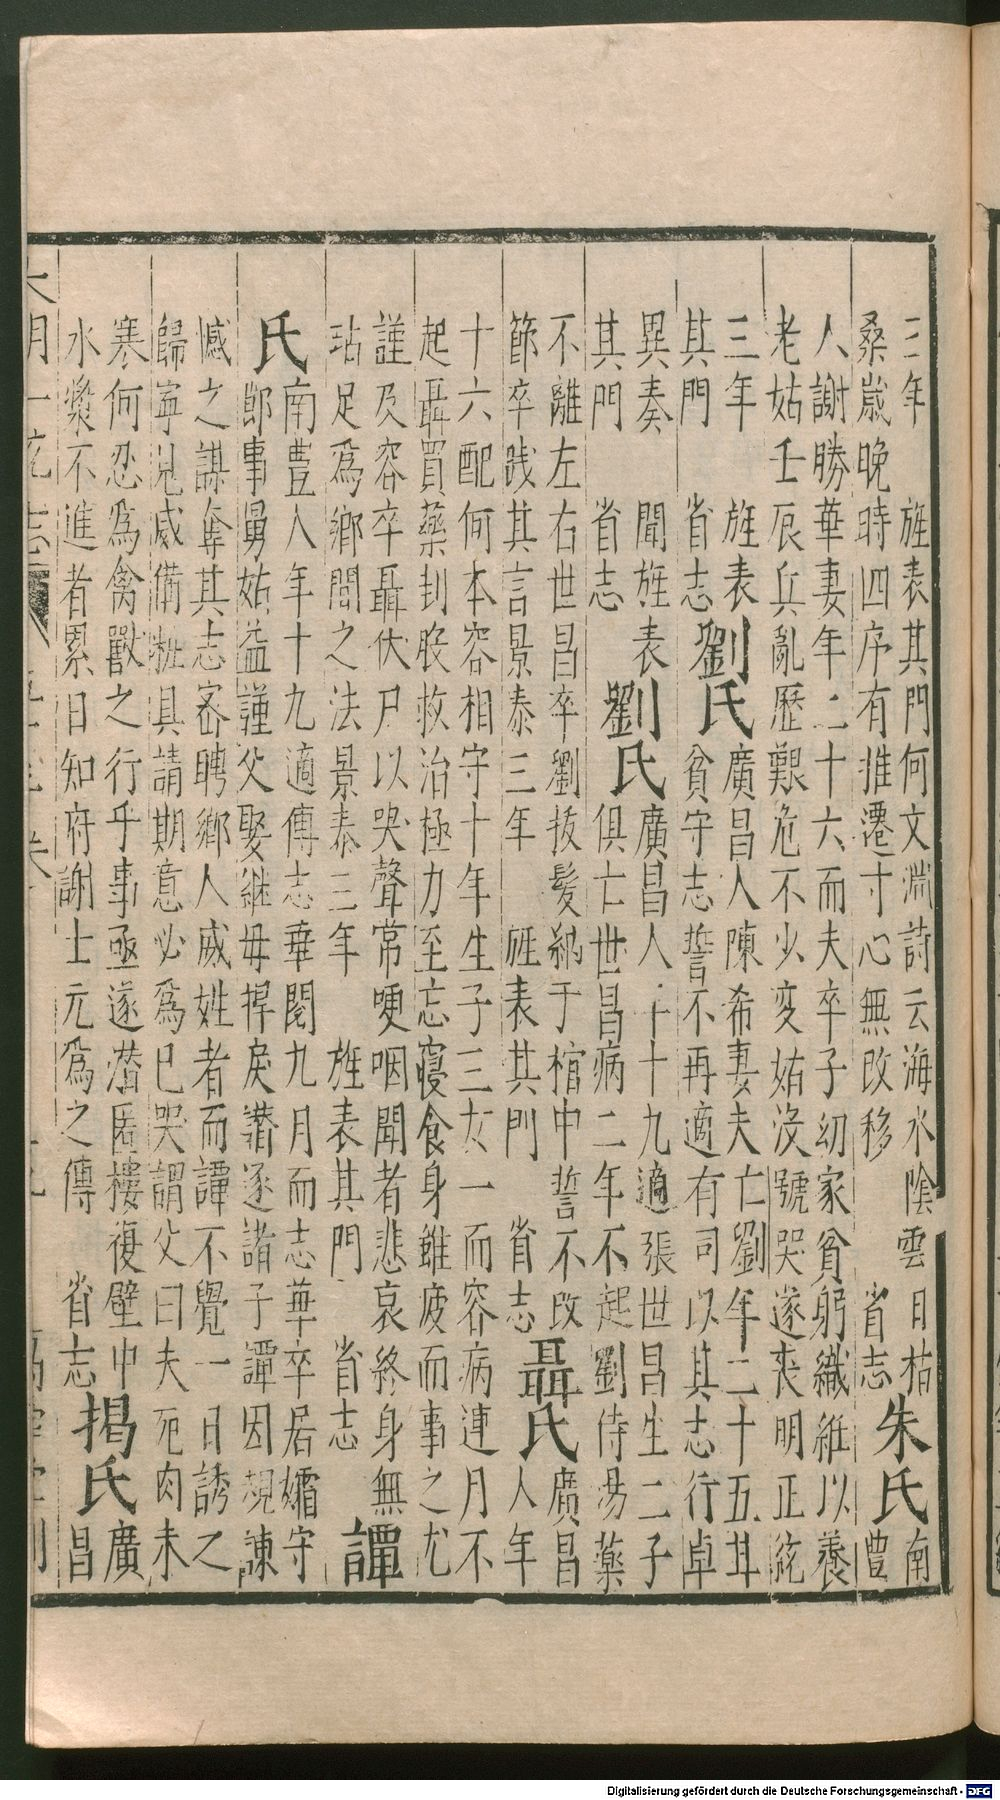 三年　旌表其門何文淵詩云海水陰雲日枯
桑歲晚時四序有推遷寸心無改移　省志
朱氏
南
豊
人謝勝華妻年二十六而夫卒子幼家貧躬織絍以養
老姑壬辰兵亂歷艱危不少変姑沒號哭遂丧明正統
三年　旌表
其門　省志
劉氏
廣昌人陳希妻夫亡劉年二十五甘
貧守志誓不再適有司以其志行卓
異奏　聞旌表
其門　省志
劉氏
廣昌人年十九適張世昌生二子
俱亡世昌病二年不起劉侍湯藥
不離左右世昌卒劉抜髮納于棺中誓不改
節卒践其言景泰三年　旌表其門　省志
聶氏
廣昌
人年
十六配何本容相守十年生子三女一而容病連月不
起聶買藥刲股救治極力至忘寢食身雖疲而事之尤
謹及容卒聶伏尸以哭聲常哽咽聞者悲哀終身無
玷足爲鄉閭之法景泰三年　旌表其門　省志
譚
氏
南豊人年十九適傅志華閱九月而志華卒居孀守
節事舅姑益謹父娶継母捍戾潜逐諸子譚因規諌
憾之謀奪其志密聘鄉人戚姓者而譚不覺一日誘之
歸寧見戚備粧具請期意必爲已哭謂父曰夫死肉未
寒何忍爲禽獸之行乎事亟遂潜匿樓復壁中
水漿不進者累日知府謝士元爲之傳　省志
揭氏
廣
昌
大明一統志